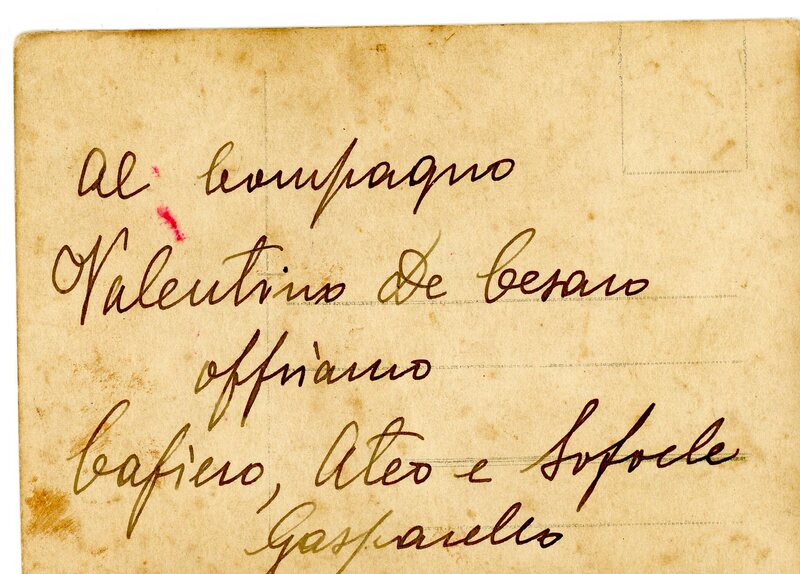 Al Compagno
Valentino De Cesaro
offriamo
Cafiero, Ateo e Sofocle
Gasparello